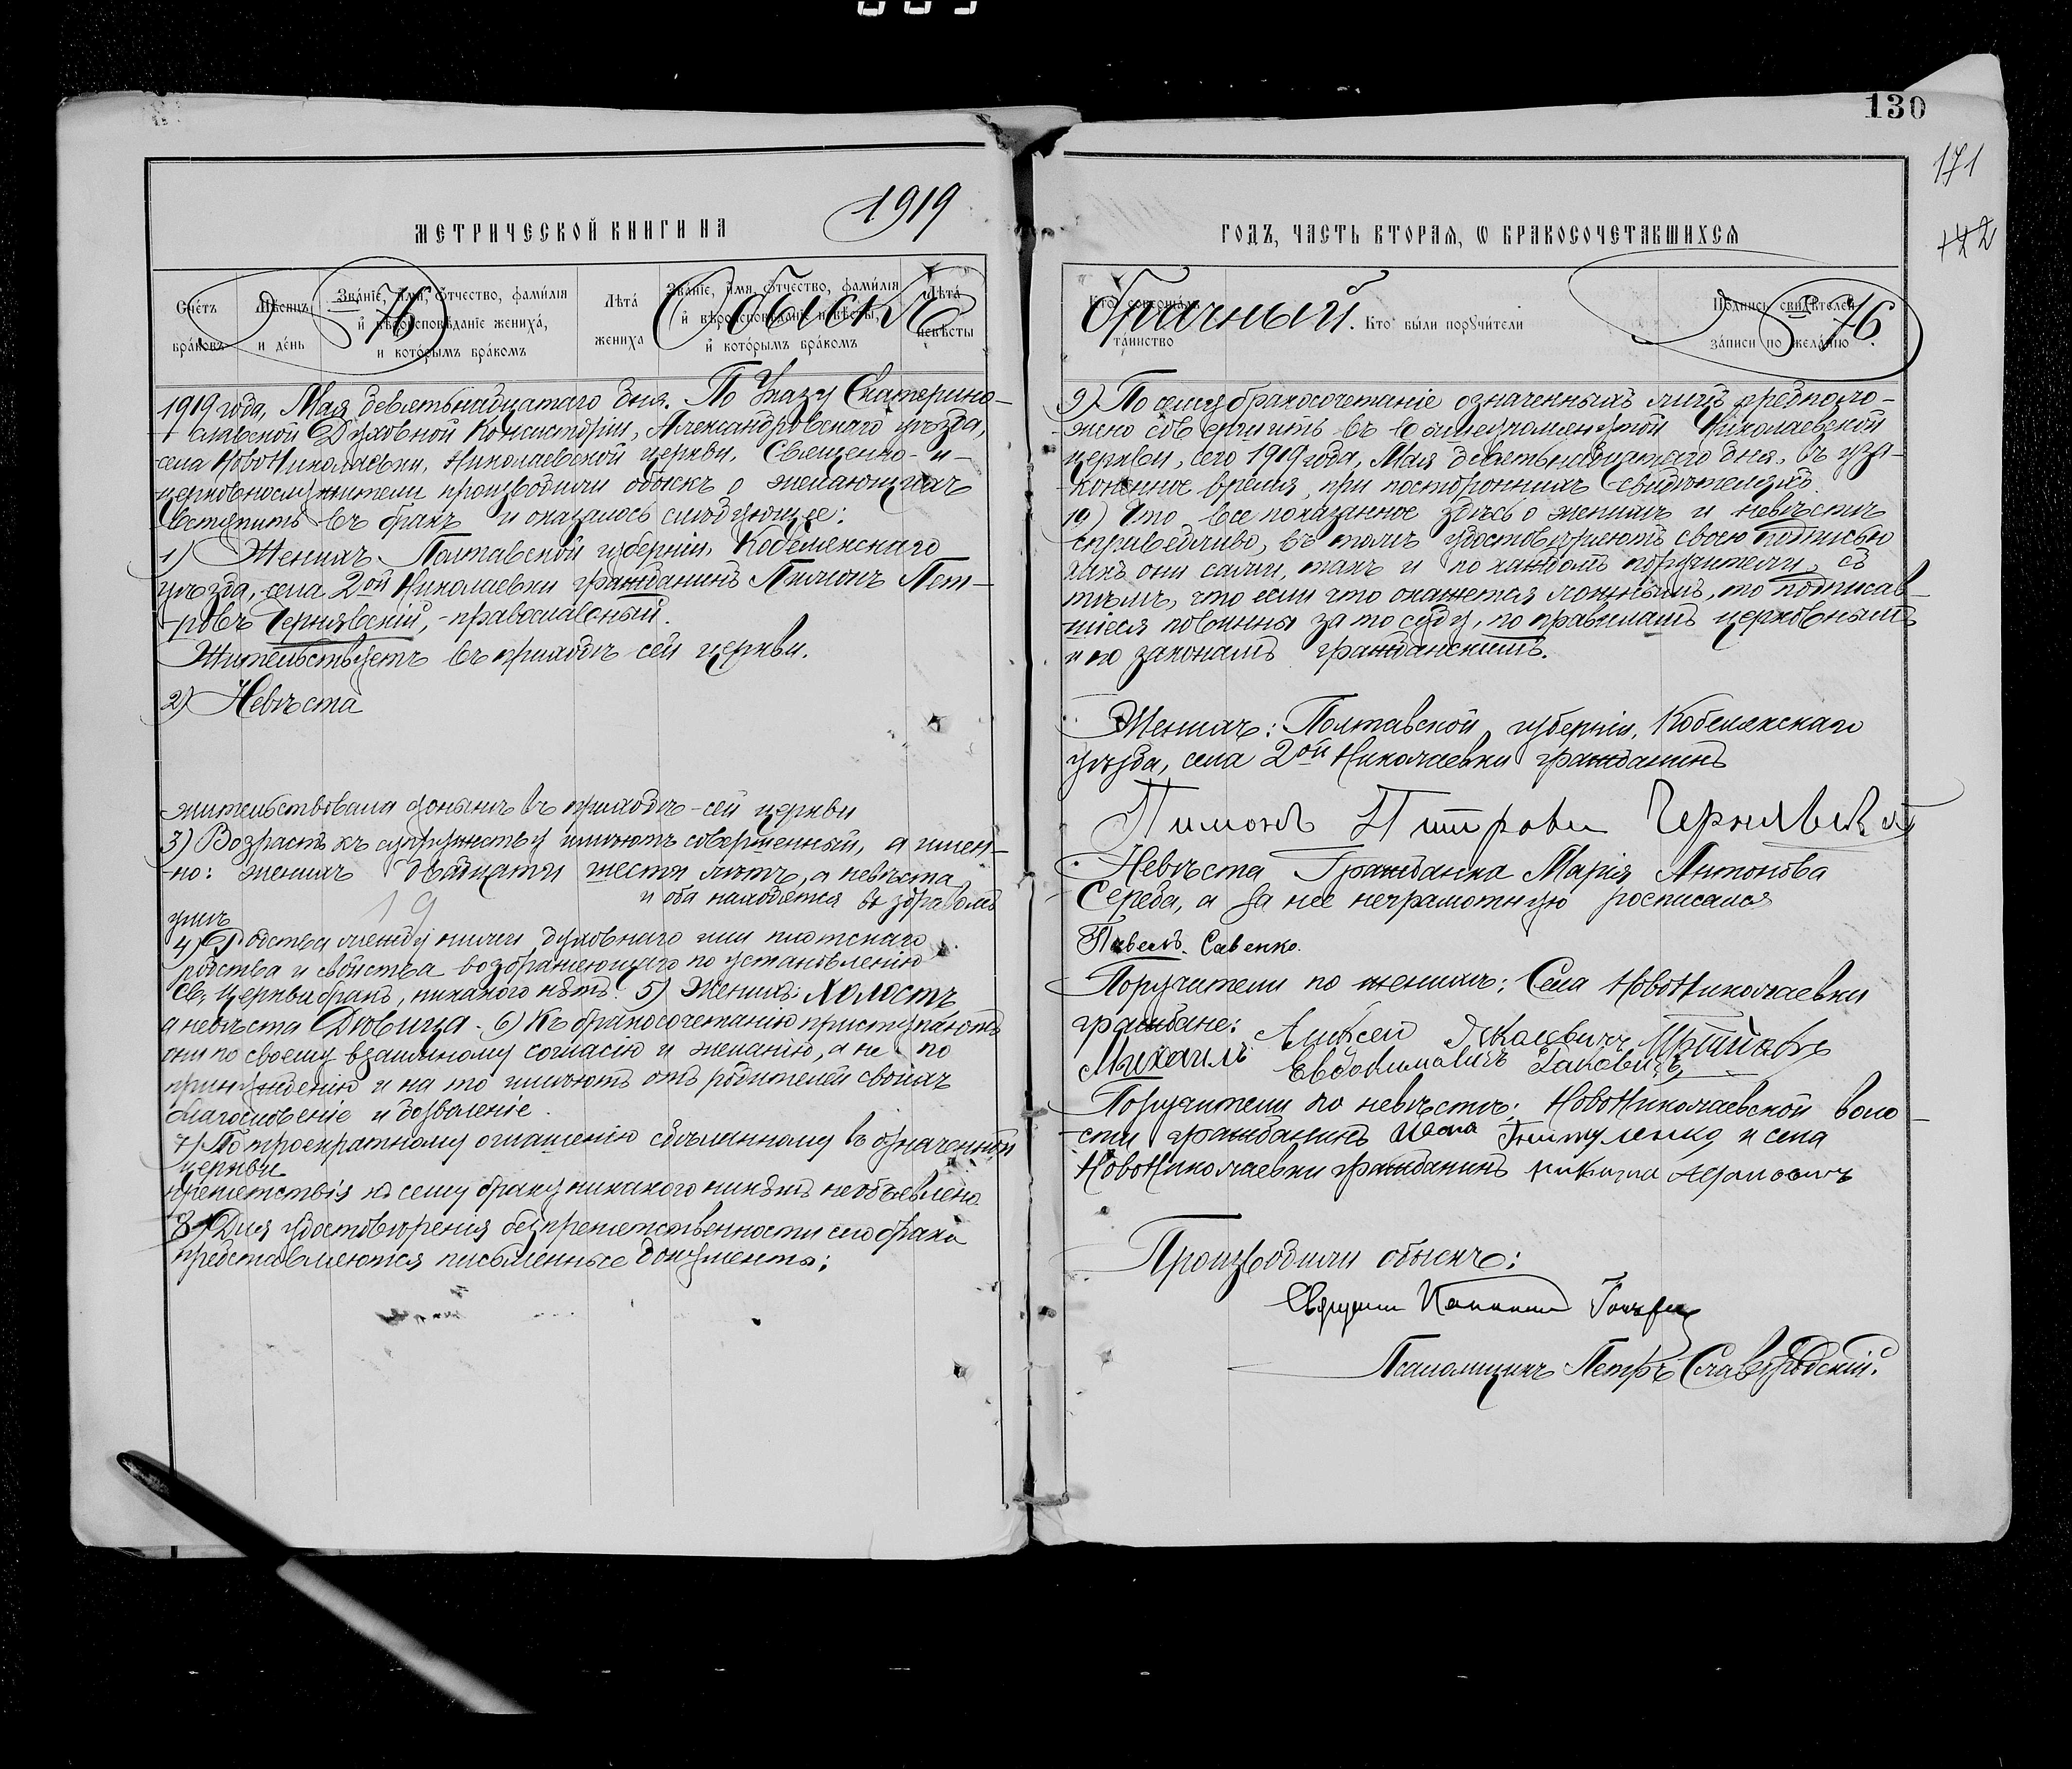 130
171
МЕТРИЧЕСКОЙ КНИГИ НА 1919
Счетъ браковъ
Мѣсяцъ и день
Званіе, имя, отчество, фамилія и вѣроисповѣданіе жениха, и которымъ бракомъ
Лѣта жениха
Званіе, имя, отчество, фамилія и вѣроисповѣданіе невѣсты, и которымъ бракомъ
Лѣта невѣсты
76 Обыскъ
1919 года, Мая девятьнадцатаго дня. По Указу Екатерино-
славской Духовной Консисторіи, Александровскаго уѣзда,
села НовоНиколаевки, Николаевской церкви, Священно- и-
церковнослужители производили обыскъ о желающихъ
вступить въ бракъ и оказалось слѣдующее:
1) Женихъ Полтавской губерніи, Кобелякскаго
уѣзда, села 2ой Николаевки гражданинъ Пимонъ Пет-
ровъ Чернявскій, - православный.
Жительствуетъ въ приходѣ сей церкви.
2) Невѣста
жительствовала донынѣ въ приходѣ сей церкви
3) Возрастъ къ супружеству имѣютъ совершенный, а имен-
но: женихъ двайцати шести лѣтъ, а невѣста
19 и оба находятся въ здравомъ
умѣ
4) Родства между ними духовнаго или плотскаго
родства и свойства возбраняющаго по установленію
св. церкви бракъ, никакого нѣтъ. 5) Женихъ: Холостъ
а невѣста Дѣвица. 6) Къ бракосочетанію приступаютъ
они по своему взаимному согласію и желанію, а не по
принужденію и на то имѣютъ отъ родителей своихъ
благословеніе и дозволеніе.
7) По троекратному оглашенію сдѣланному въ означенной
церкви
препятствія къ сему браку никакого никѣмъ необъявлено.
8) Для удостовѣренія безпрепятственности сего брака
представляются письменные документы:
ГОДЪ, ЧАСТЬ ВТОРАЯ, О БРАКОСОЧЕТАВШИХСЯ
Кто совершалъ таинство
Кто были поручители
Подпись свидѣтелей записи по желанію
Брачный. 76
9) По сему бракосочетаніе означенныхъ лицъ предполо-
жено совершить въ вышеупомянутой Николаевской
церкви, сего 1919 года, Мая девятьнадцатаго дня, въ уза-
коненное время, при постороннихъ свидѣтеляхъ.
10) Что все показанное здѣсь о женихѣ и невѣстѣ
справедливо, въ томъ удостовѣряютъ своею подписью
какъ они сами, такъ и по каждомъ поручители, съ
тѣмъ, что если что окажется ложнымъ, то подписав-
шіеся повинны за то суду, по правиламъ церковнымъ
и по законамъ гражданскимъ.
Женихъ: Полтавской губерніи, Кобелякскаго
уѣзда, села 2ой Николаевки гражданинъ
Пимонъ Чернявскій
Невѣста Гражданка Марія Антонова
Середа, а за нее неграмотную росписался
Павелъ Савенко.
Поручители по женихѣ: Села НовоНиколаевки
граждане: Аликсей
Михаилъ Евдокимовичъ
Поручители по невѣстѣ: НовоНиколаевской воло-
сти гражданинъ и села
НовоНиколаевки гражданинъ
Производили обыскъ:
Псаломщикъ Петръ Славгородскій.